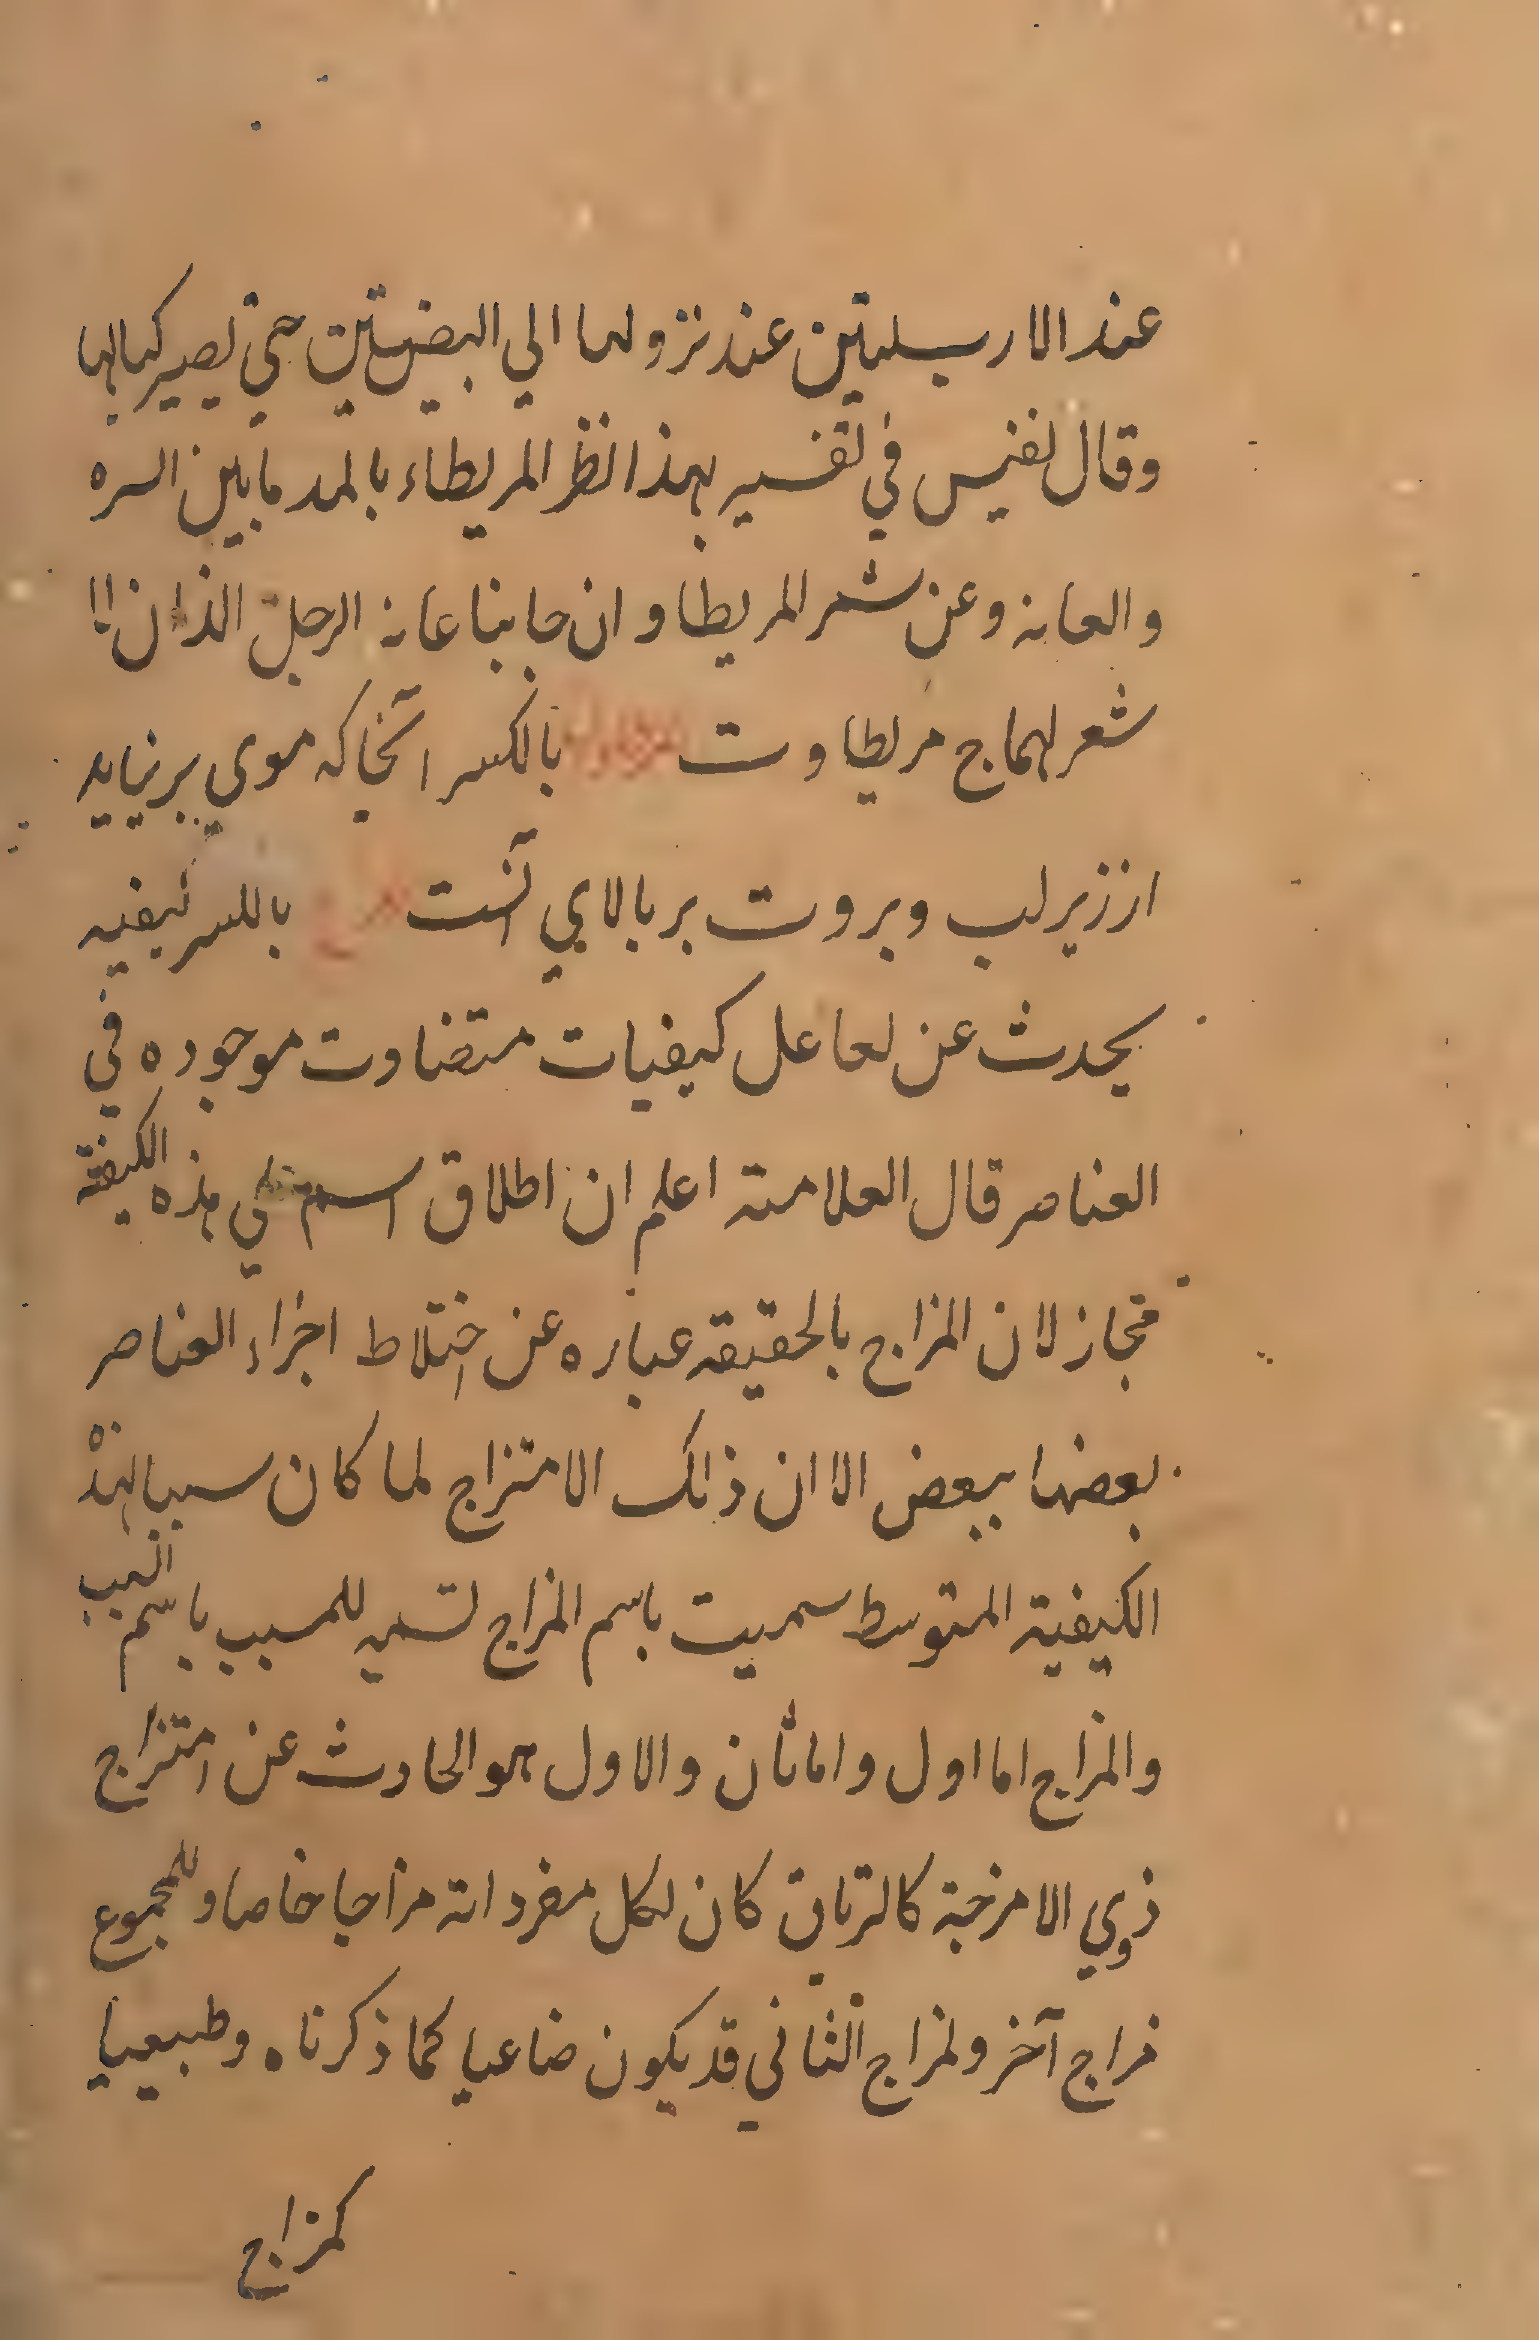 عند الاربيتين عند نزولهما الي البيضتين حتي يصير كيالها
وقال نفيس في تفسير بهذا نظر المريطاء بالمد ما بين السره
والعانه وعن شمر المريطا وان جانبا عانه الرجل الذان لا
شعر لهما ج مريطاوت بالكسر آنجا كه موي بر نيايد
از زير لب و بروت بر بالاي آنست مزاج بالكسر كيفيه
يحدث عن تفاعل كيفيات متضاوت موجوده في
العناصر قال العلامته اعلم ان اطلاق اسم علي هذه الكيفية
مجاز لان المزاج بالحقيقه عباره عن اختلاط اجزاء العناصر
بعضها ببعض الا ان ذلك الامتزاج لما كان سببا لهذه
الكيفية المتوسط سميت باسم المزاج تسميه للمسبب باسم السبب
والمزاج اما اول واما ثان والاول هو الحادث عن امتزاج
ذوي الامزجة كالترياق كان لكل مفرداته مزاجا خاصا وللمجموع
مزاج آخر ولمزاج الثاني قد يكون ضاعيا كما ذكرناه وطبيعيا
كمزاج